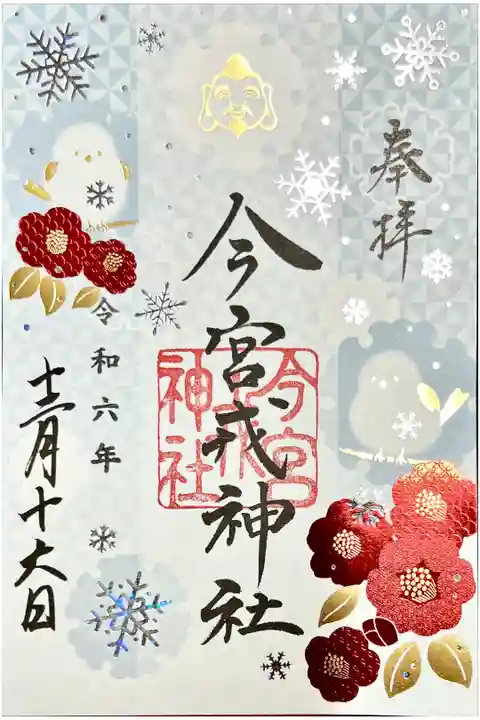 奉拝
今宮戎神社
今宮
戎
神社
令和六年
十二月十六日